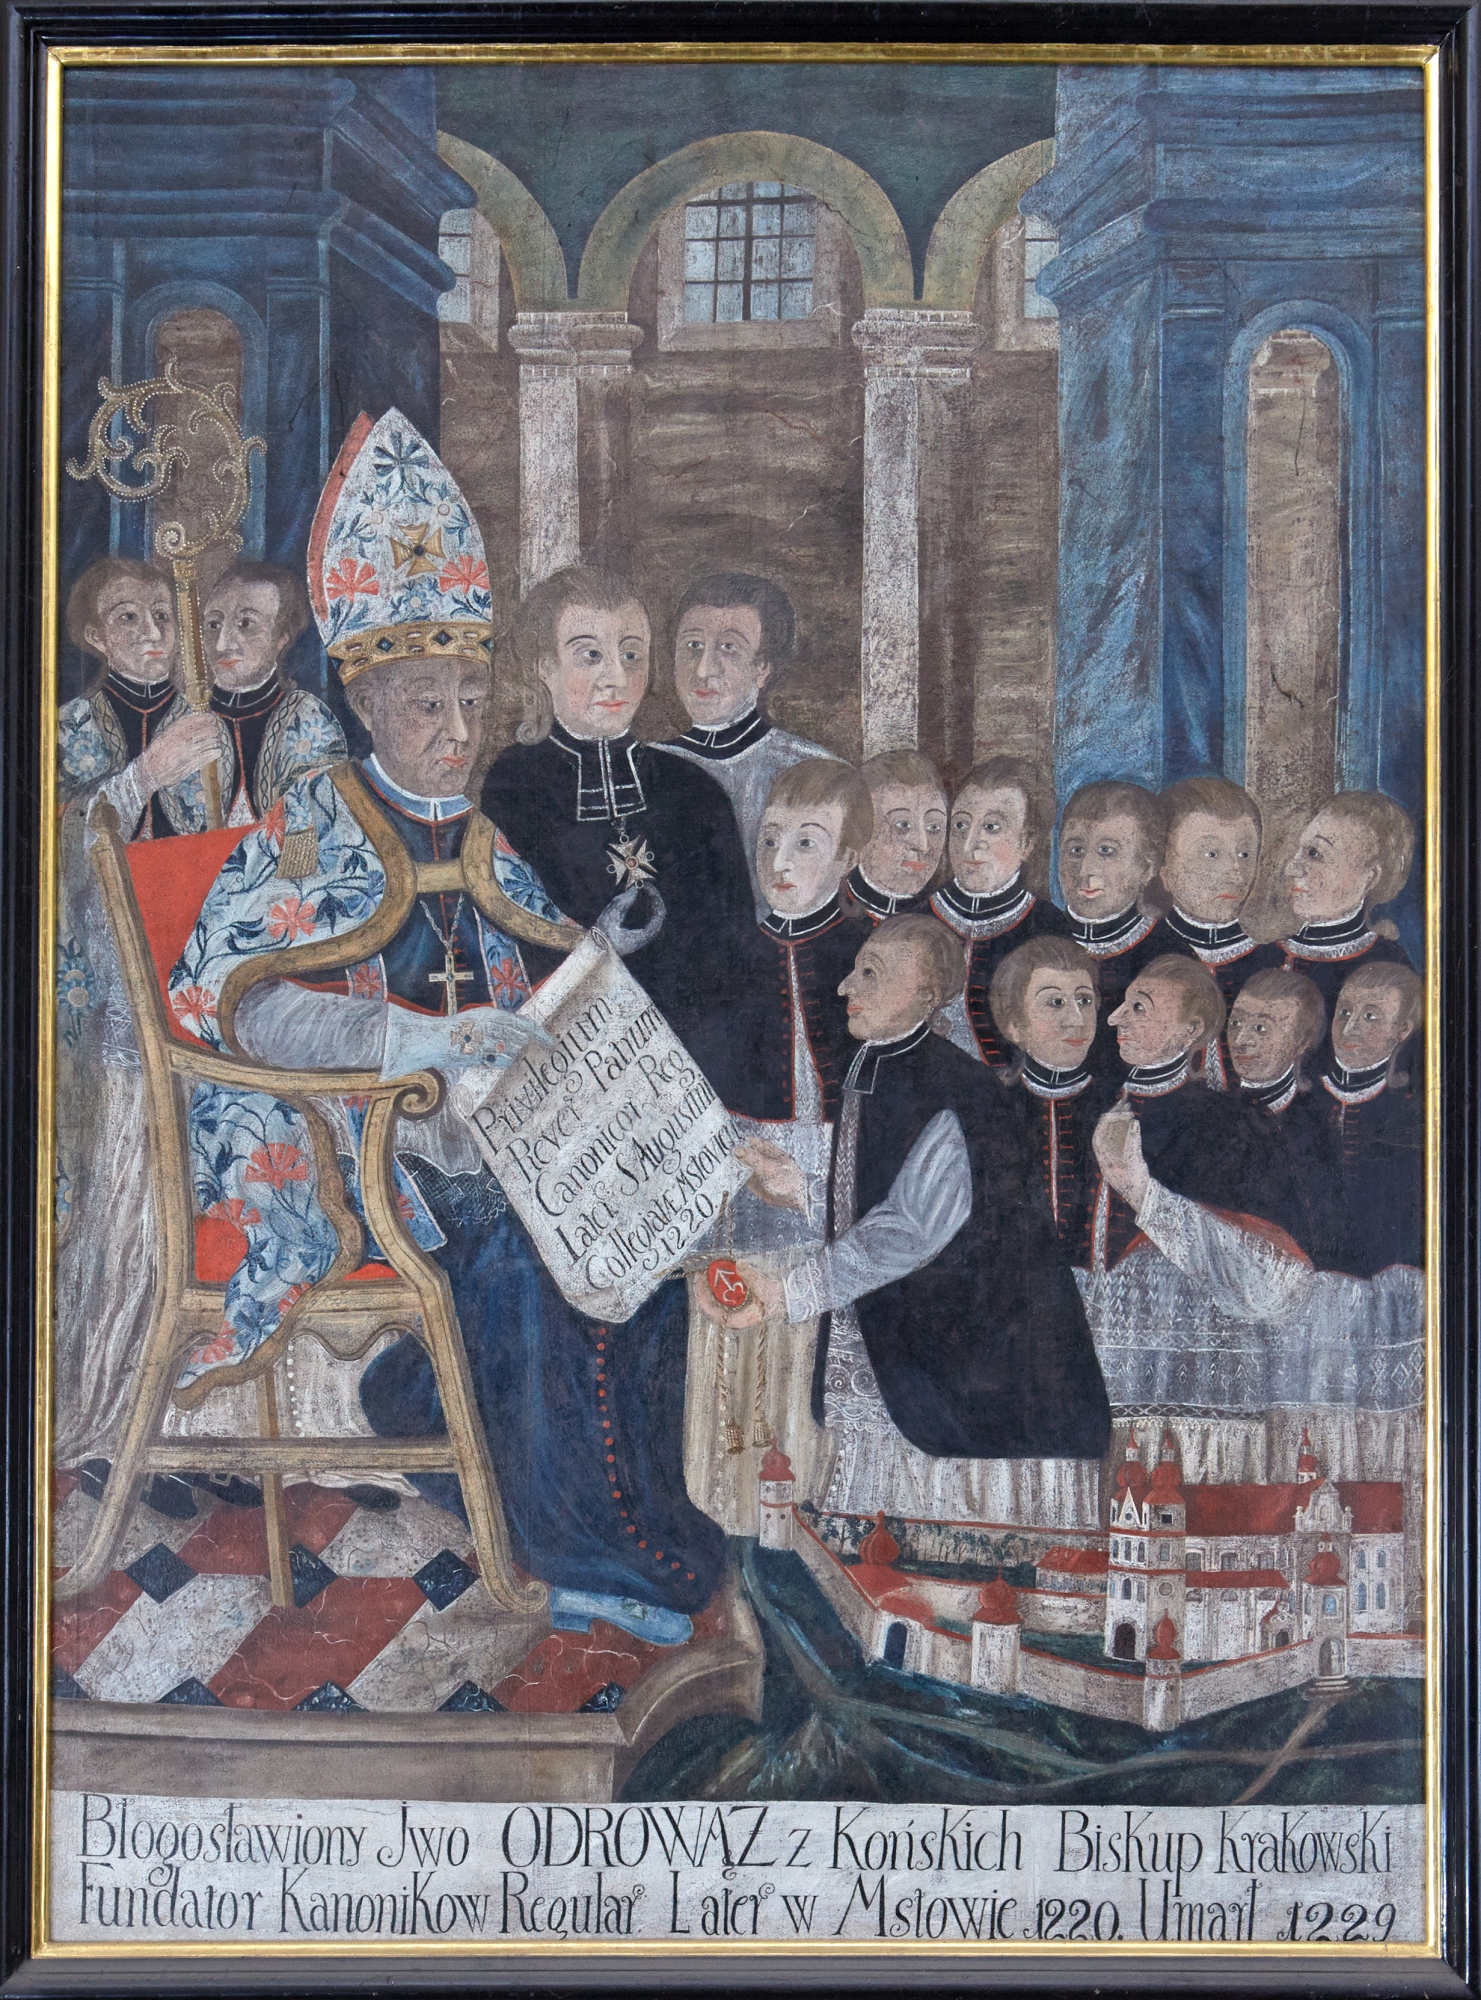 Privilegium
Rever Patrum
Canonicor Reg
Later S Augustini
Collegiatæ Mstovien
1220.
Błogosławiony Jwo ODROWĄZ z Końskich Biskup Krakowski
Fundator Kanonikow Regular. Later w Mstowie 1220. Umarł 1229